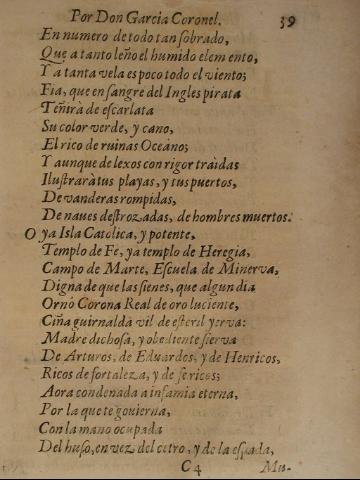 Por Don Garcia Coronel. 39
En numero de todo tan sobrado,
Que a tanto leño el humido elem ento,
Y a tanta vela es poco todo el viento;
Fia, que en sangre del Ingles pirata
Teñirà de escarlata
Su color verde, y cano,
El rico de ruinas Oceano;
Y aunque de lexos con rigor traìdas
Ilustrarà tus playas, y tus puertos,
De vanderas rompidas,
De naues destrozadas, de hombres muertos.
O ya Isla Catolica, y potente,
Templo de Fe, ya templo de Heregia,
Campo de Marte, Escuela de Minerva,
Digna de que las sienes, que algun dia
Ornò Corona Real de oro luciente,
Ciña guirnalda vil de esteril yerva:
Madre dichosa, y obediente sierva
De Arturos, de Eduardos, y de Henricos,
Ricos de fortaleza, y de fe ricos;
Aora condenada a infamia eterna,
Por la que te gouierna,
Con la mano ocupada
Del huso, en vez del cetro, y de la espada,
C 4 Mu-